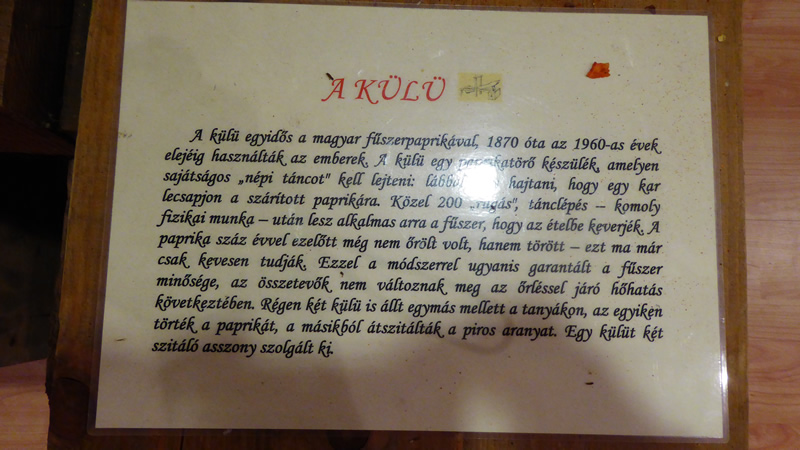 A KÜLÜ
A külü egyidős a magyar fűszerpaprikával, 1870 óta az 1960-as évek
elejéig használták az emberek. A külü egy paprikatörő készülék, amelyen
sajátságos „népi táncot" kell lejteni: lábbal hajtani, hogy egy kar
lecsapjon a szárított paprikára. Közel 200 „rúgás", tánclépés – komoly
fizikai munka – után lesz alkalmas arra a fűszer, hogy az ételbe keverjék. A
paprika száz évvel ezelőtt még nem őrölt volt, hanem törött – ezt ma már
csak kevesen tudják. Ezzel a módszerrel ugyanis garantált a fűszer
minősége, az összetevők nem változnak meg az őrléssel járó hőhatás
következtében. Régen két külü is állt egymás mellett a tanyákon, az egyiken
törték a paprikát, a másikból átszitálták a piros aranyat. Egy külüt két
szitáló asszony szolgált ki.